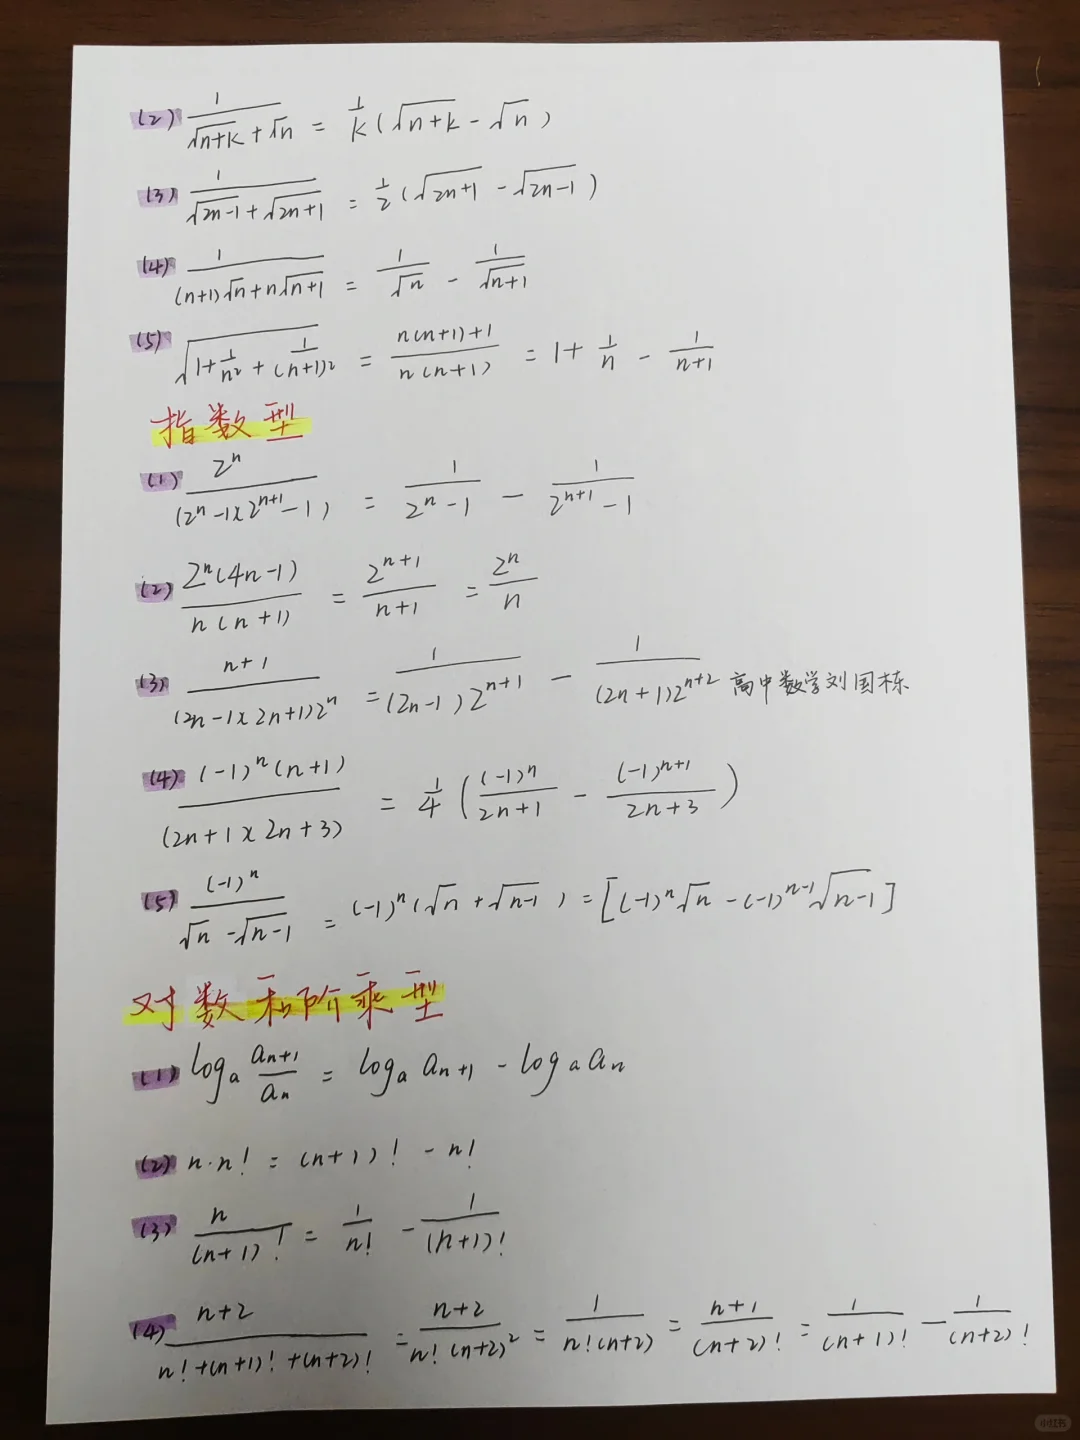 (2) 1/(√(n+k)+√n) = 1/k(√(n+k) - √n)
(3) 1/(√(2n-1)+√(2n+1)) = 1/2(√(2n+1) - √(2n-1))
(4) 1/((n+1)√n+n√(n+1)) = 1/√n - 1/√(n+1)
(5) √(1+1/n²+1/(n+1)²) = (n(n+1)+1)/(n(n+1)) = 1+1/n - 1/(n+1)
指数型
(1) 2ⁿ/((2ⁿ-1)(2ⁿ⁺¹-1)) = 1/(2ⁿ-1) - 1/(2ⁿ⁺¹-1)
(2) 2ⁿ(4n-1)/(n(n+1)) = 2ⁿ⁺¹/(n+1) = 2ⁿ/n
(3) (n+1)/((2n-1)(2n+1)2ⁿ) = 1/((2n-1)2ⁿ⁺¹) - 1/((2n+1)2ⁿ⁺²) 高中数学刘国栋
(4) (-1)ⁿ(n+1)/((2n+1)(2n+3)) = 1/4((-1)ⁿ/(2n+1) - (-1)ⁿ⁺¹/(2n+3))
(5) (-1)ⁿ/(√n-√(n-1)) = (-1)ⁿ(√n+√(n-1)) = [(-1)ⁿ√n-(-1)ⁿ⁻¹√(n-1)]
对数和阶乘型
(1) logₐ aₙ₊₁/aₙ = logₐ aₙ₊₁ - logₐ aₙ
(2) n·n! = (n+1)! - n!
(3) n/(n+1)! = 1/n! - 1/(n+1)!
(4) (n+2)/(n!+(n+1)!+(n+2)!) = (n+2)/(n!(n+2)²) = 1/(n!(n+2)) = (n+1)/(n+2)! = 1/(n+1)! - 1/(n+2)!
小红书